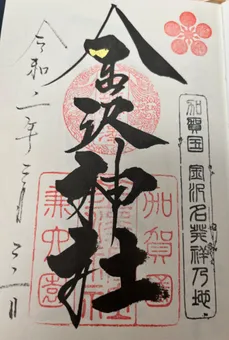 加賀国 金沢名発祥乃地
金沢神社
加賀國
兼六園
令和二年三月三十一日